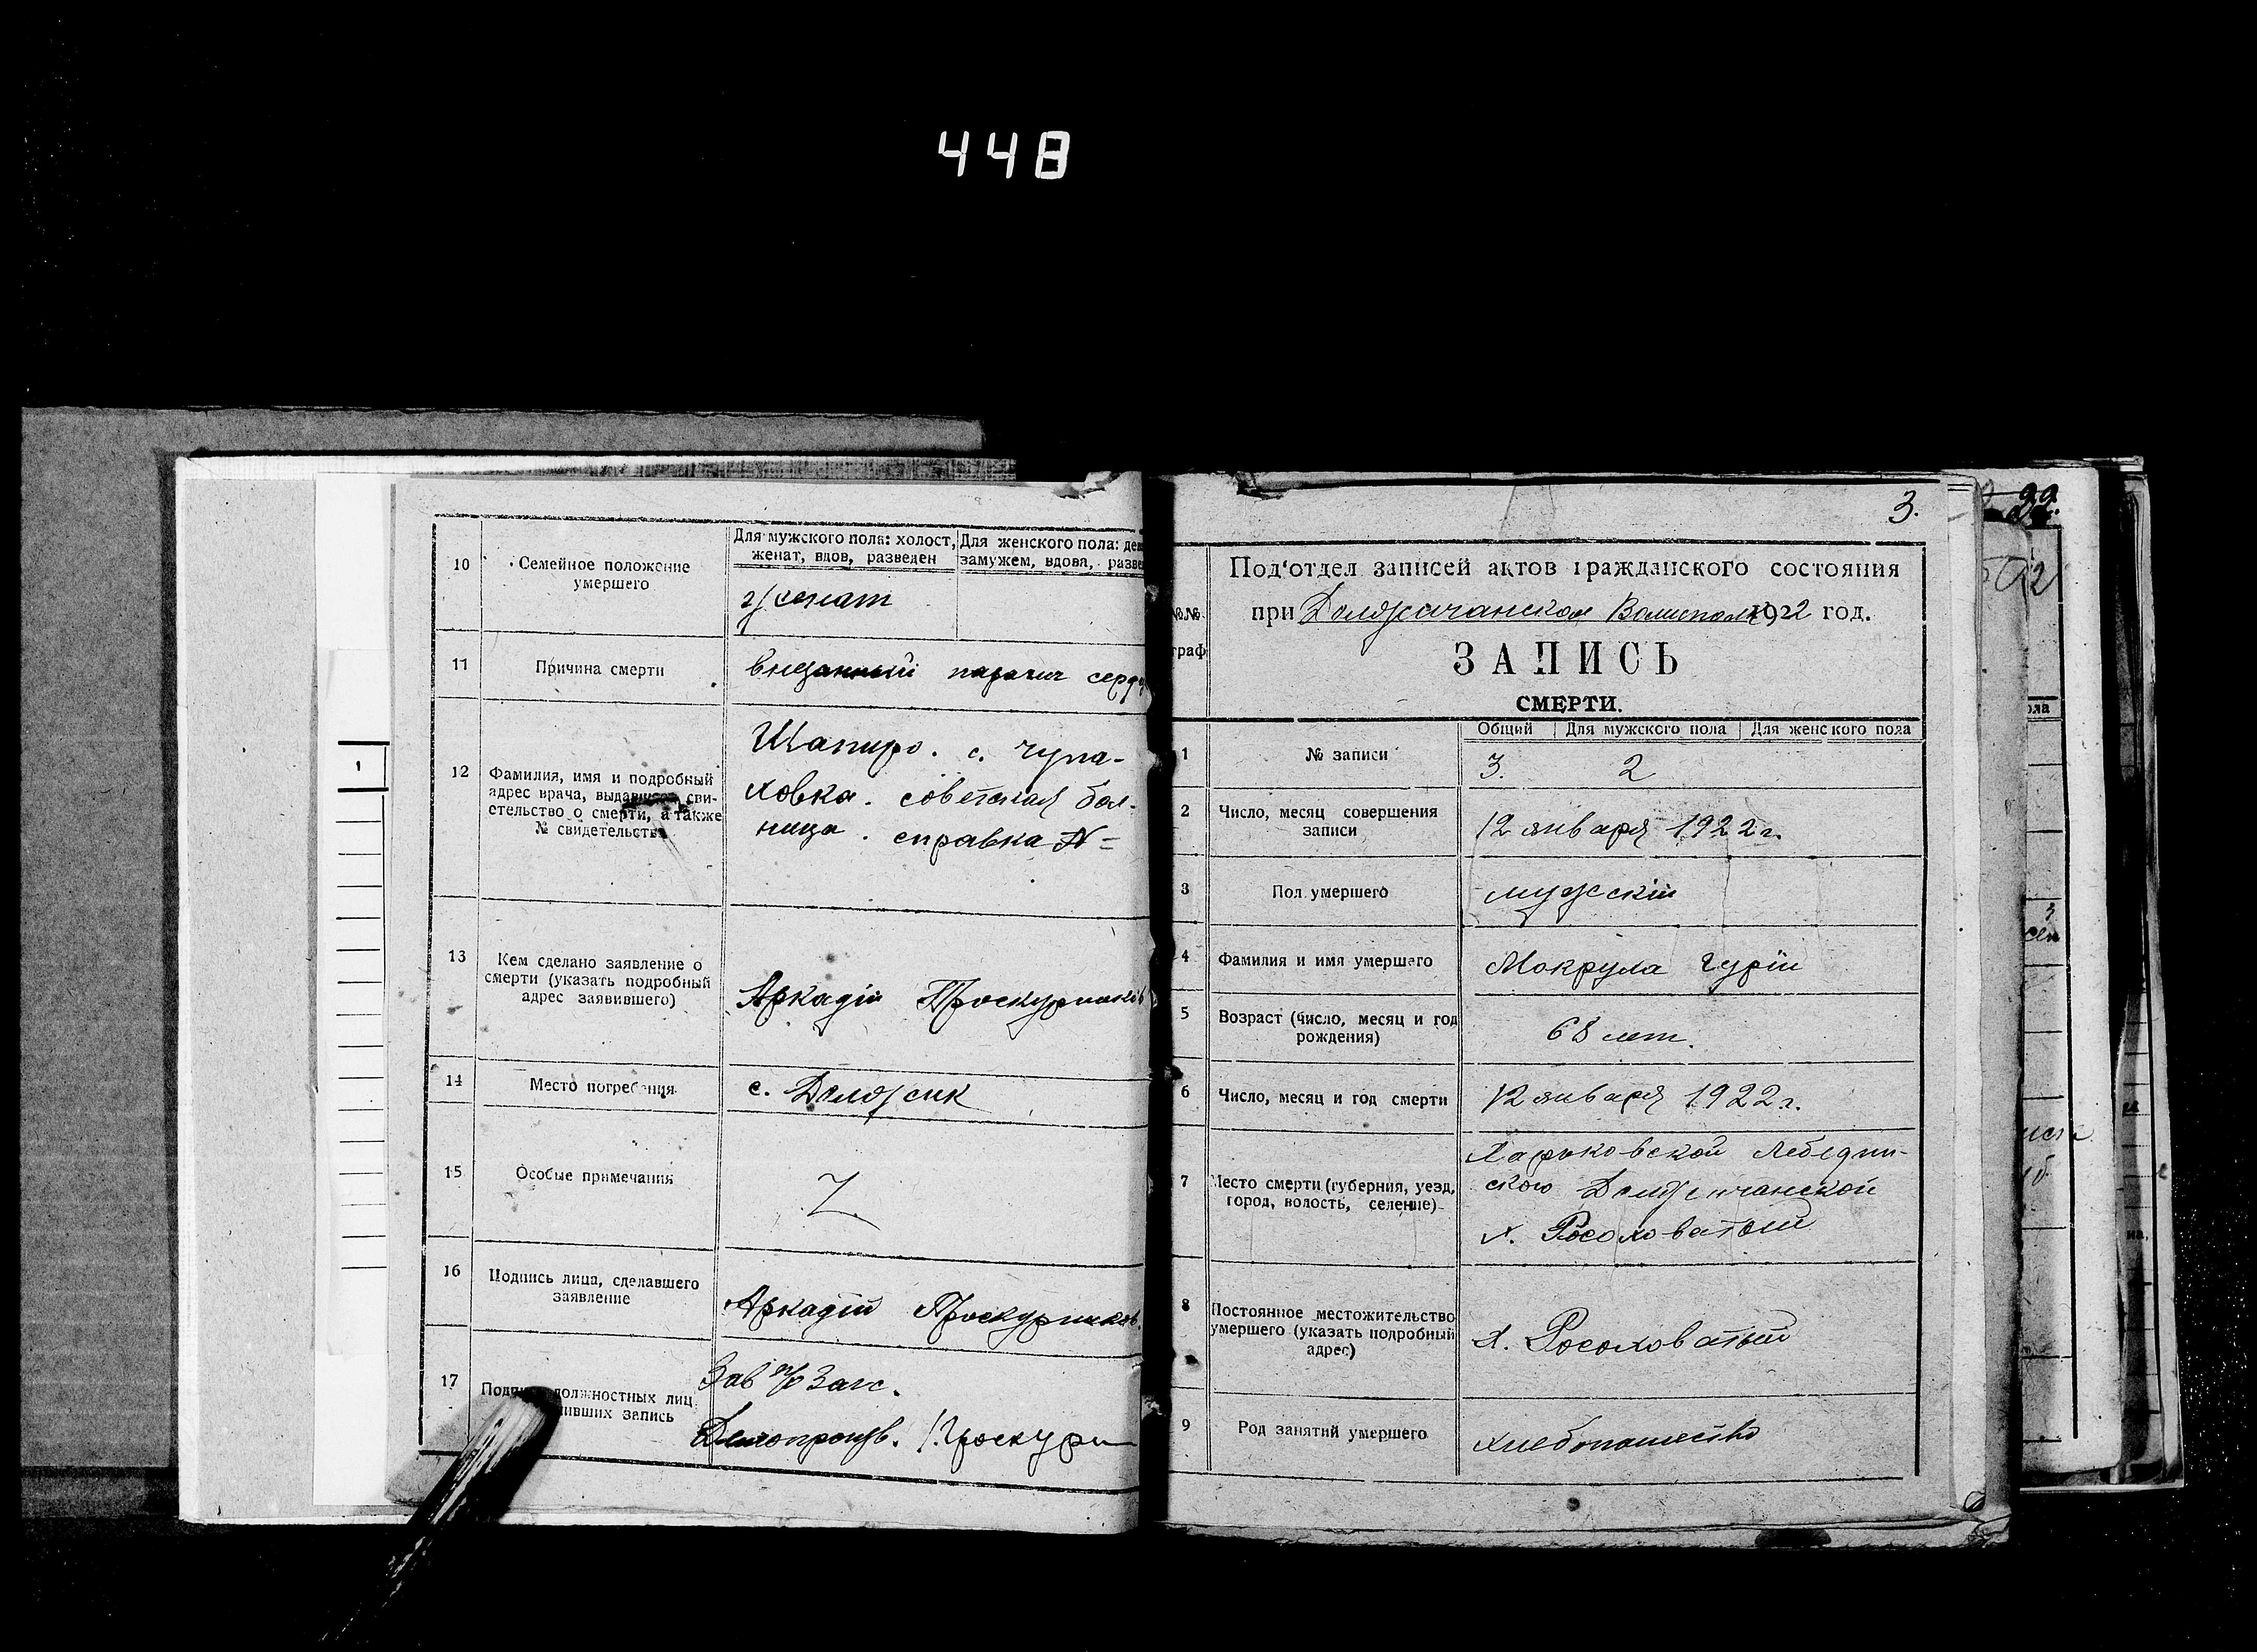 448
10
Семейное положение
умершего
Для мужского пола: холост,
женат, вдов, разведен
Для женского пола: дев
замужем, вдова, разве
женат
11
Причина смерти
внезапный паралич серд
12
Фамилия, имя и подробный
адрес врача, выдавшего сви-
етельство о смерти, а также
№ свидетельства
Шапиро. с. Чупа-
ховка. советская бол-
ница. справка №
13
Кем сделано заявление о
смерти (указать подробный
адрес заявившего)
Аркадій Проскурников
14
Место погребения
с. Должик
15
Особые примечания
16
Подпись лица, сделавшего
заявление
Аркадій Проскурников.
17
должностных лиц
ивших запись
Зав п/о Загс.
Делопроизв. Проскурн
3.
№№
граф
Под'отдел записей актов гражданского состояния
при Должичанском Волисполк 1922 год.
ЗАПИСЬ
СМЕРТИ.
Общий
Для мужского пола
Для женского пола
1
№ записи
3.
2
2
Число, месяц совершения
записи
12 января 1922 г.
3
Пол умершего
мужскій
4
Фамилия и имя умершего
Мокрула Гурій
5
Возраст (число, месяц и год
рождения)
68 лет.
6
Число, месяц и год смерти
12 января 1922 г.
7
Место смерти (губерния, уезд,
город, волость, селение)
Харьковской Лебедин-
ского Должичанской
х. Росоховатый
8
Постоянное местожительство
умершего (указать подробный
адрес)
х. Росоховатый
9
Род занятий умершего
хлебопашество
1